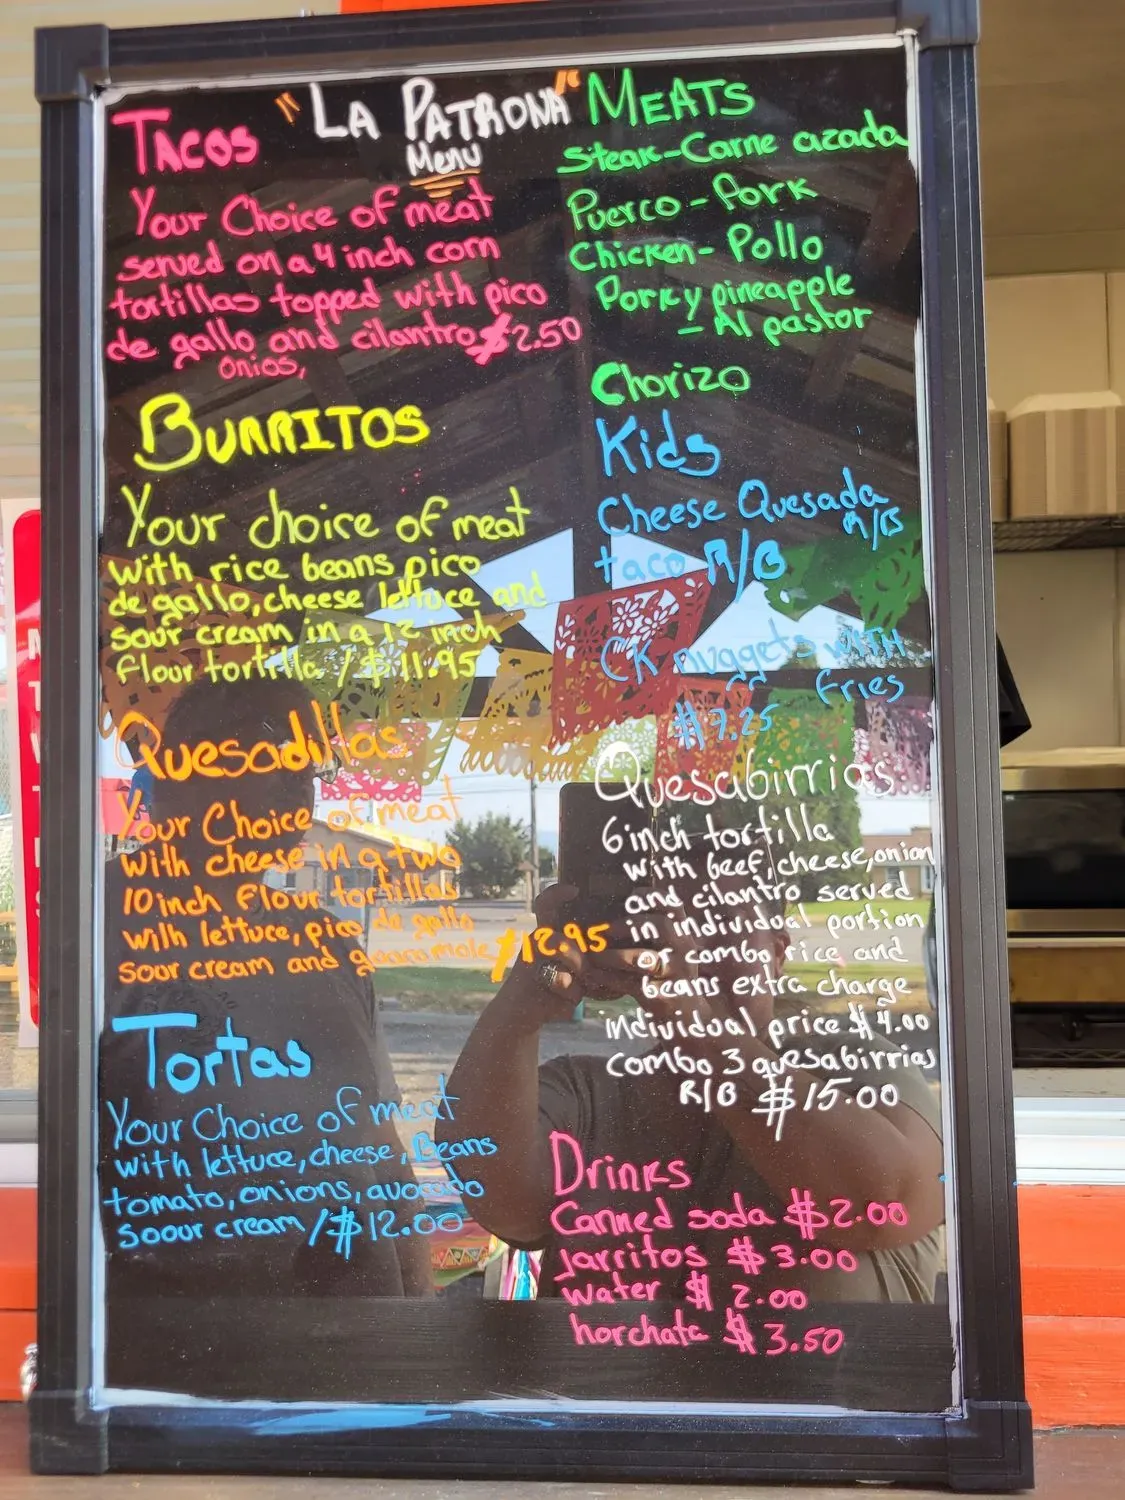 "LA PATRONA"
Menu
TACOS
Your Choice of meat
served on a 4 inch corn
tortillas topped with pico
de gallo and cilantro $2.50
onios,
BURRITOS
Your choice of meat
with rice beans pico
de gallo, cheese lettuce and
sour cream in a 12 inch
flour tortilla / $11.95
Quesadillas
Your Choice of meat
with cheese in a two
10 inch flour tortillas
with lettuce, pico de gallo
sour cream and guacamole $12.95
Tortas
Your Choice of meat
with lettuce, cheese, Beans
tomato, onions, avocado
soour cream / $12.00
MEATS
Steak-Carne azada
Puerco - Pork
Chicken - Pollo
Pork y pineapple
- Al pastor
Chorizo
Kids
Cheese Quesada
R/B
taco R/B
CK nuggets WITH
fries
$7.25
Quesabirrias
6 inch tortilla
with beef, cheese, onion
and cilantro served
in individual portion
or combo rice and
beans extra charge
individual price $4.00
combo 3 quesabirrias
R/B $15.00
Drinks
Canned soda $2.00
Jarritos $3.00
water $2.00
horchata $3.50